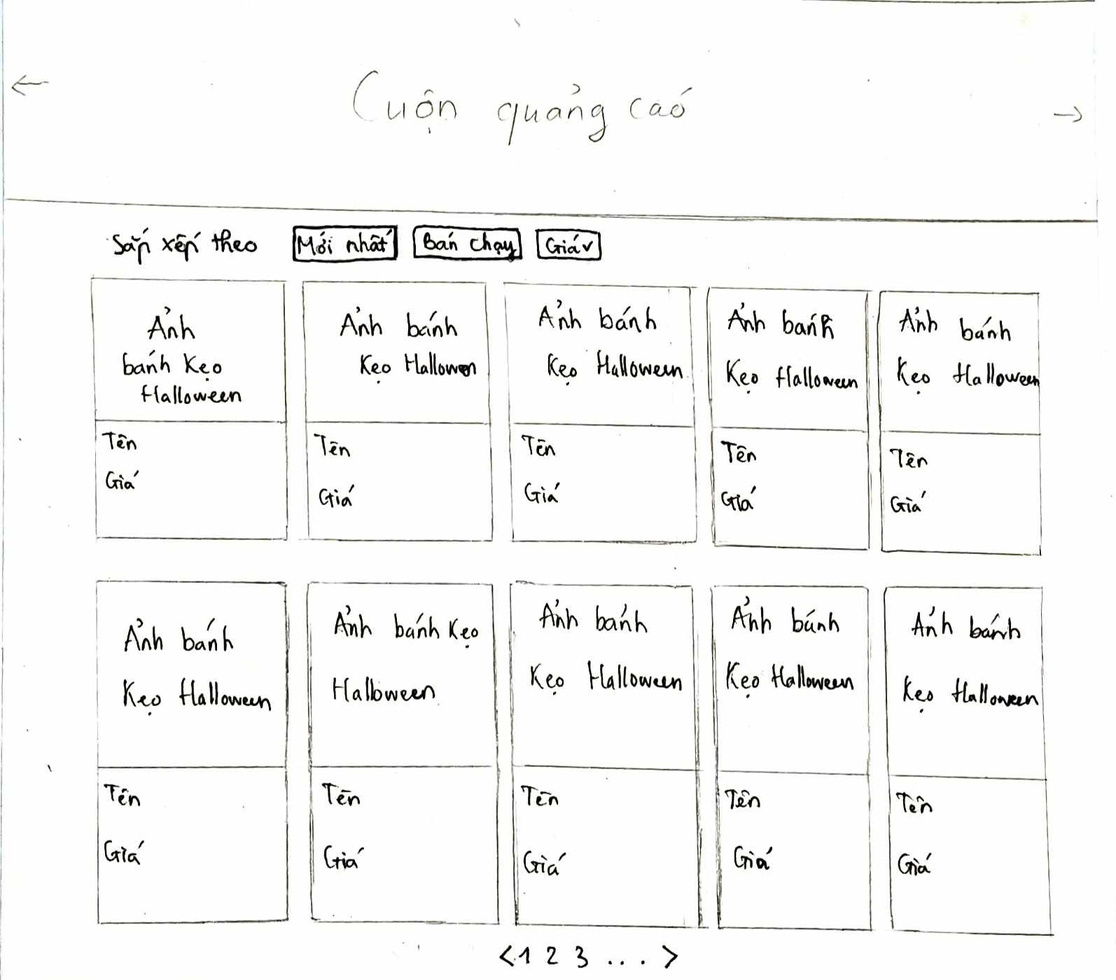 ← Cuộn quảng cáo →
Sắp xếp theo Mới nhất Bán chạy Giá v
Ảnh
bánh Kẹo
Halloween
Tên
Giá
Ảnh bánh
Kẹo Halloween
Tên
Giá
Ảnh bánh
Kẹo Halloween
Tên
Giá
Ảnh bánh
Kẹo Halloween
Tên
Giá
Ảnh bánh
Kẹo Halloween
Tên
Giá
Ảnh bánh
Kẹo Halloween
Tên
Giá
Ảnh bánh Kẹo
Halloween
Tên
Giá
Ảnh bánh
Kẹo Halloween
Tên
Giá
Ảnh bánh
Kẹo Halloween
Tên
Giá
Ảnh bánh
Kẹo Halloween
Tên
Giá
< 1 2 3 ... >